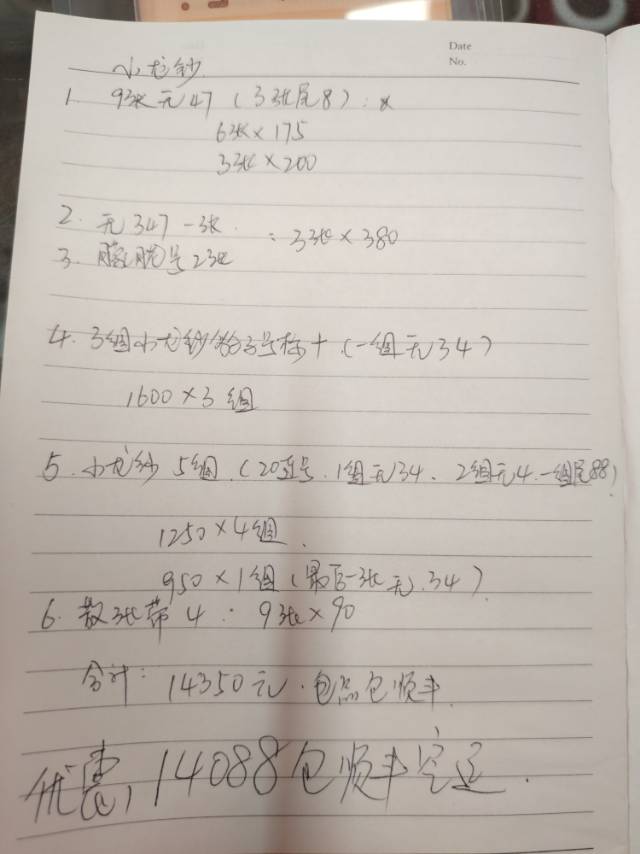 Date
No.
小龙钞
1. 9张无47(3张尾8):
6张×175
3张×200
2. 无347一张
:3张×380
3. 朦胧号2张
4. 3组小龙钞豹子号标十(一组无34)
1600×3组
5. 小龙钞 5组.(20连号.1组无34、2组无4.一组尾88)
1250×4组.
950×1组(最后一张无.34)
6. 散张带4: 9张×90
合计: 14350元.包品包顺丰
优惠,14088包顺丰空运.